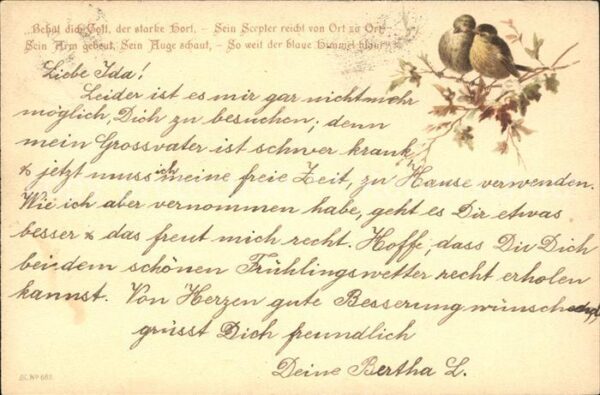 „Behüt dich Gott, der starke Hort, – Sein Scepter reicht von Ort zu Ort,
Sein Arm gebeut, Sein Auge schaut, – So weit der blaue Himmel blaut."
Liebe Ida!
Leider ist es mir gar nicht mehr
möglich, Dich zu besuchen; denn
mein Grossvater ist schwer krank,
& jetzt muss ich meine freie Zeit, zu Hause verwenden.
Wie ich aber vernommen habe, geht es Dir etwas
besser & das freut mich recht. Hoffe, dass Du Dich
bei dem schönen Frühlingswetter recht erholen
kannst. Von Herzen gute Besserung wünschend,
grüsst Dich freundlich
Deine Bertha L.